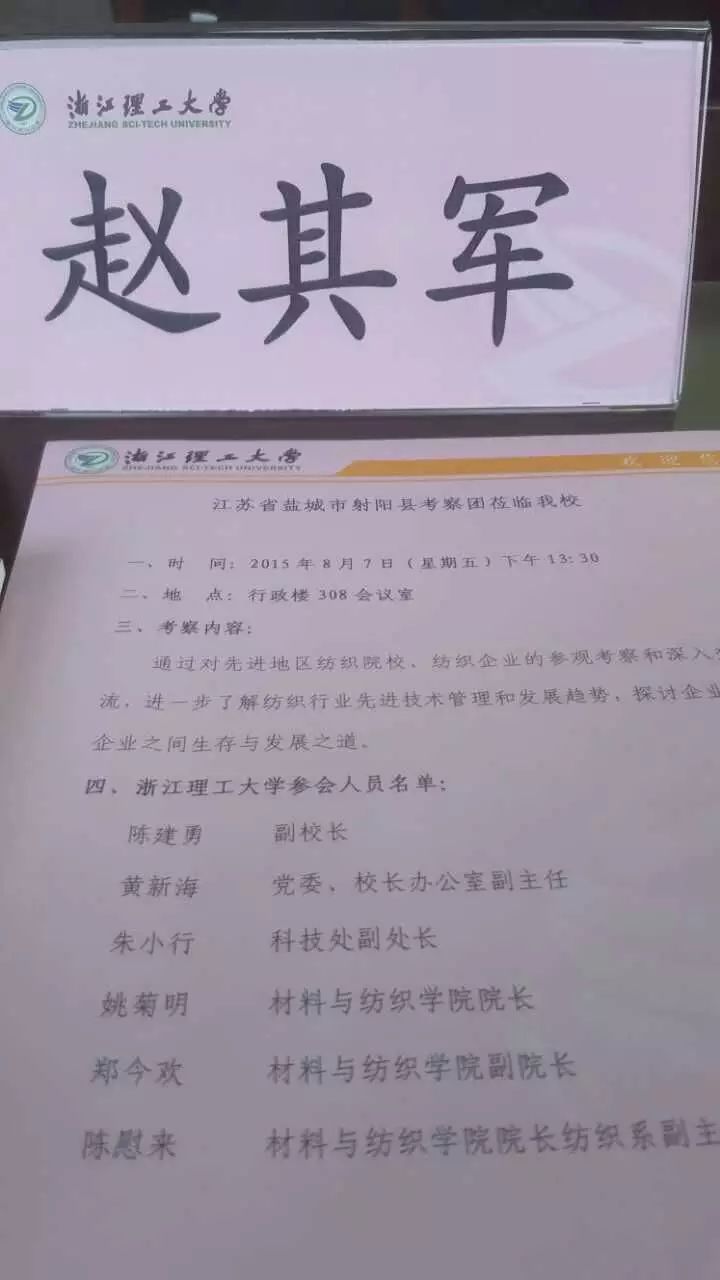 浙江理工大学
ZHEJIANG SCI-TECH UNIVERSITY
赵其军
浙江理工大学
ZHEJIANG SCI-TECH UNIVERSITY
欢迎您
江苏省盐城市射阳县考察团莅临我校
一、时 间：2015年8月7日（星期五）下午13:30
二、地 点：行政楼308会议室
三、考察内容：
通过对先进地区纺织院校、纺织企业的参观考察和深入
流，进一步了解纺织行业先进技术管理和发展趋势，探讨企业
企业之间生存与发展之道。
四、浙江理工大学参会人员名单：
陈建勇 副校长
黄新海 党委、校长办公室副主任
朱小行 科技处副处长
姚菊明 材料与纺织学院院长
郑今欢 材料与纺织学院副院长
陈慰来 材料与纺织学院院长纺织系副主